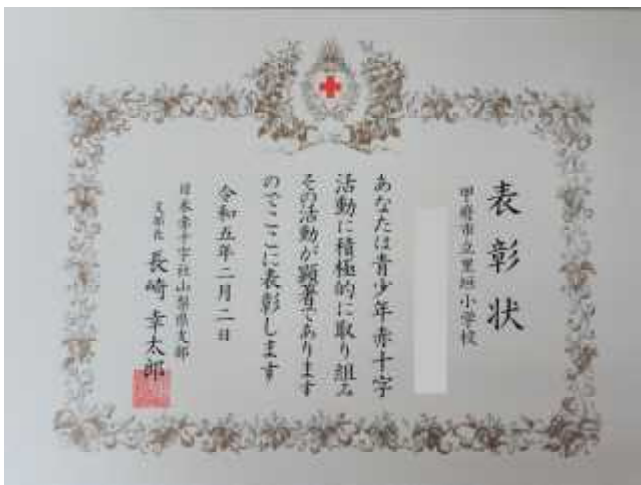 表彰状
甲府市立里垣小学校
あなたは青少年赤十字
活動に積極的に取り組み
その活動が顕著であります
のでここに表彰します
令和五年二月二日
日本赤十字社山梨県支部
支部長 長崎幸太郎